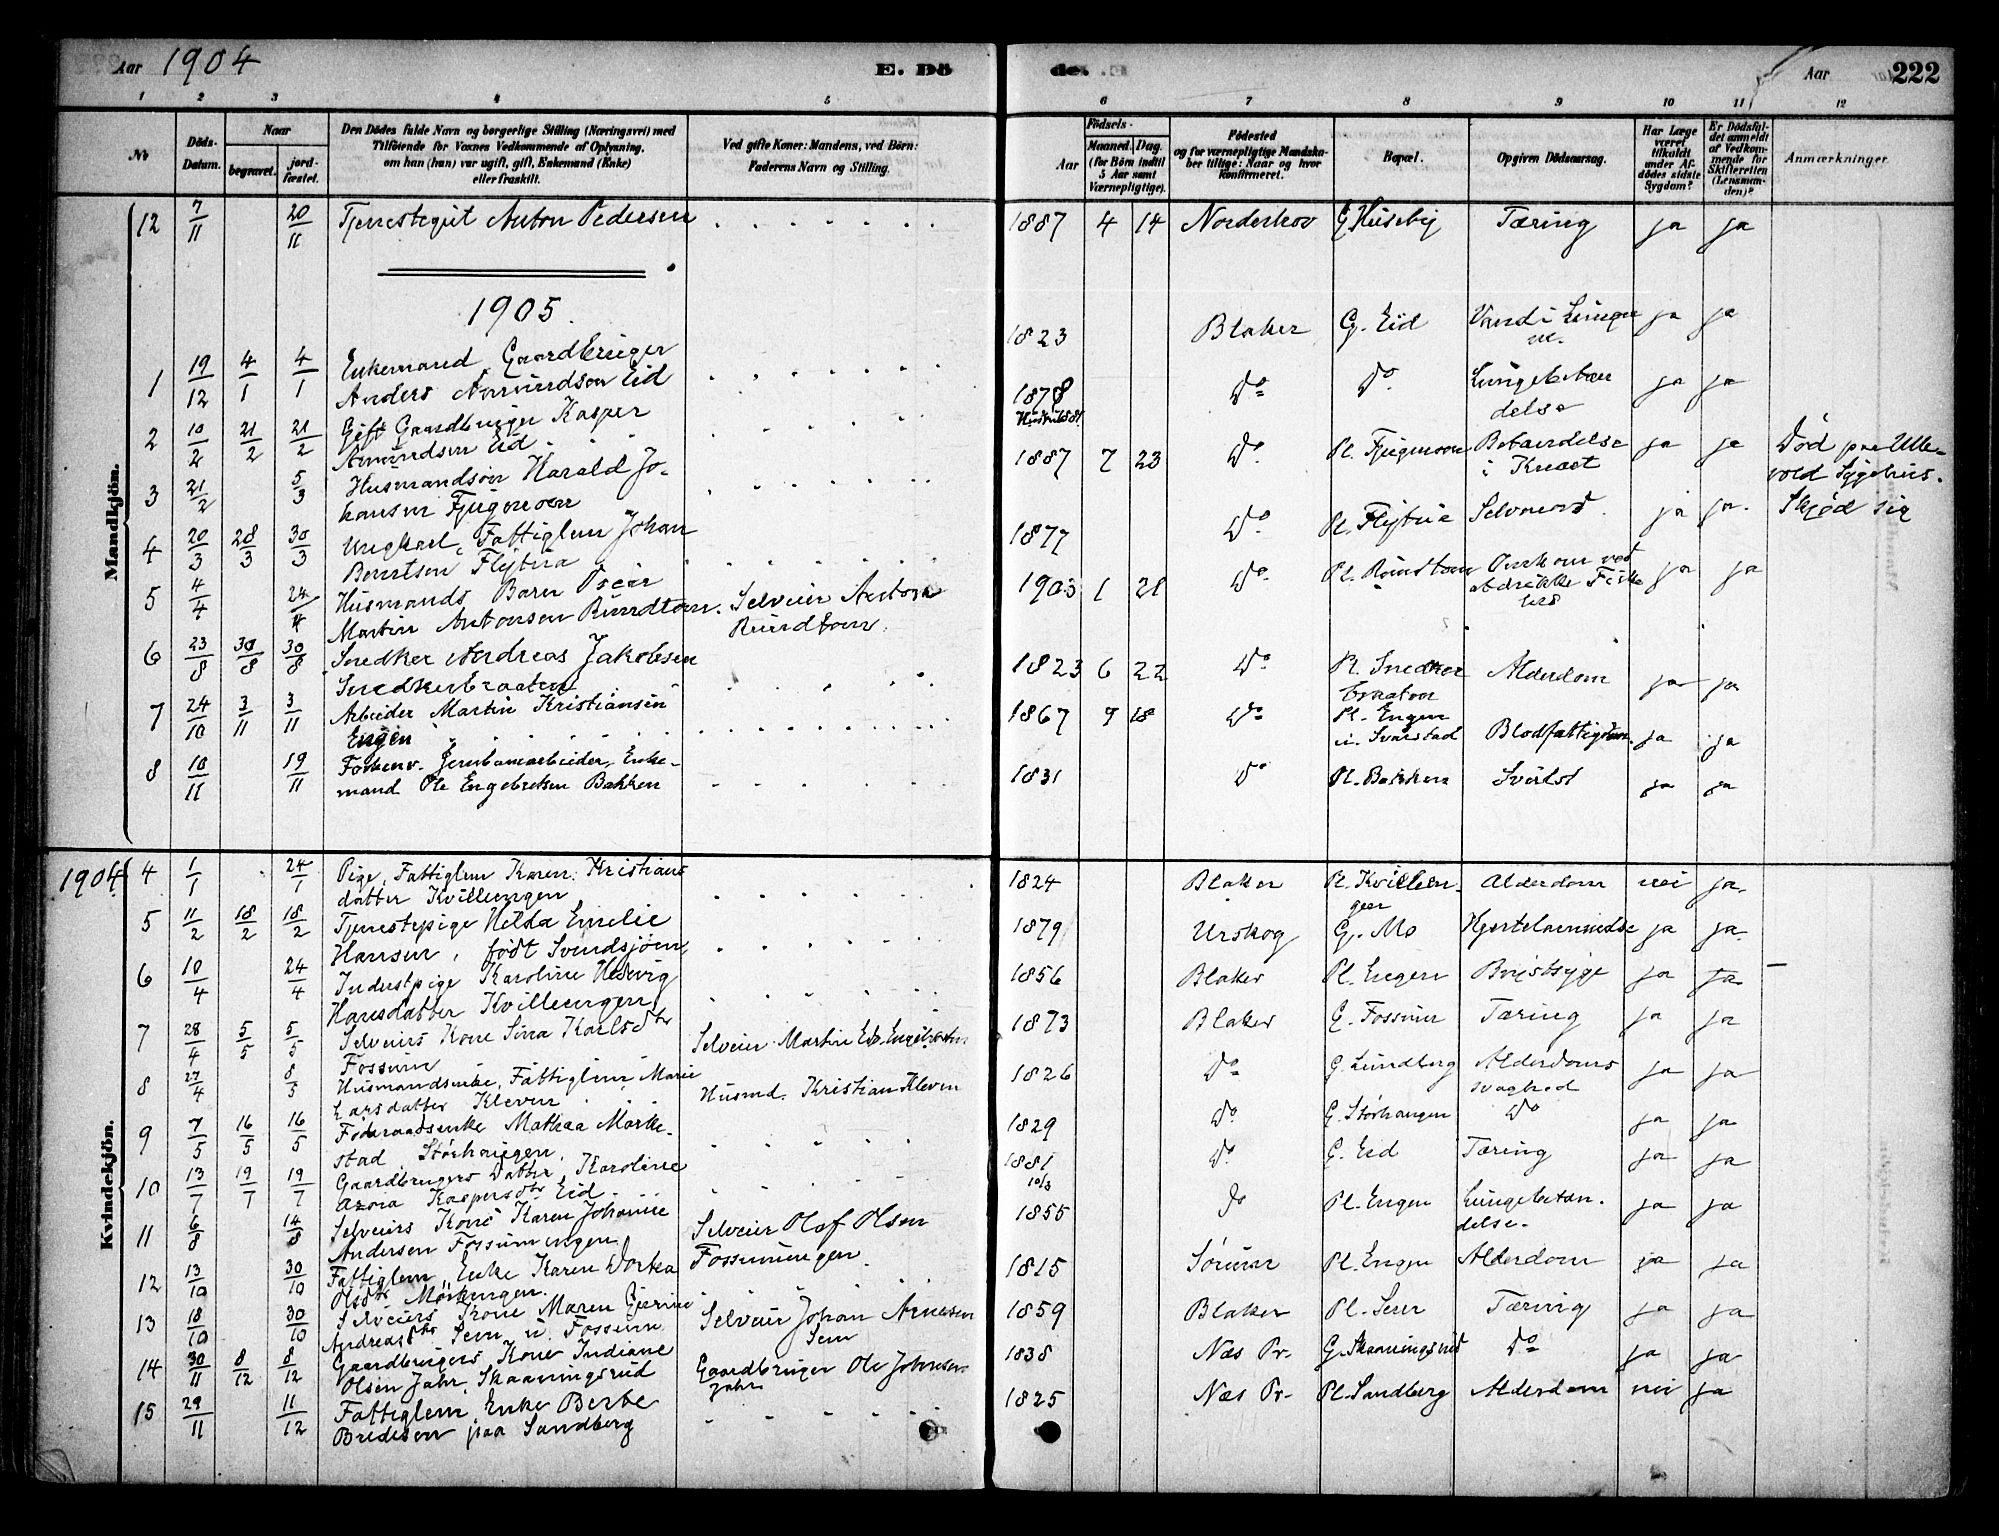 Aar 1904
E. Dö
de.
Aar
222
1 2 3 4 5 6 7 8 9 10 11 12
No
Döds-Datum.
Naar
begravet.
jord-fæstet.
Den Dödes fulde Navn og borgerlige Stilling (Næringsvei) med
Tilföiende for Voxnes Vedkommende af Oplysning,
om han (hun) var ugift, gift, Enkemand (Enke)
eller fraskilt.
Ved gifte Koner: Mandens, ved Börn:
Faderens Navn og Stilling.
Födsels-
Aar
Maaned. Dag.
(for Börn indtil
5 Aar samt
Værnepligtige).
Födested
og for værnepligtige Mandska-
ber tillige: Naar og hvor
Konfirmeret.
Bopæl.
Opgiven Dödsaarsag.
Har Læge
været
tilkaldt
under Af-
dödes sidste
Sygdom?
Er Dödsfal-
det anmeldt
af Vedkom-
mende for
Skifteretten
(Lensman-
den)?
Anmærkninger.
Mandkjön.
12 7/11 20/11 Tjenestegut Anton Pedersen 1887 4 14 Norderhov G Huseby Tæring ja ja
1905.
1 19/12 4/1 4/1 Enkemand, Gaardbruger
Anders Amundsen Eid 1823 Blaker G. Eid Vand i Lungerne ja ja
2 10/2 21/2 21/2 Gift Gaardbruger Kasper
Amundsen Eid 1878 Do Do Lungebetæn
delse ja ja
3 21/2 5/3 Husmandsøn Harald Jo-
hansen Fjugmoen 1887 7 23 Do Pl. Fjugmoen Betændelse
i Knæet ja ja Død paa Ulle-
vold Sygehus.
4 20/3 28/3 30/3 Ungkarl, Fattiglem Johan
Berntsen Flytna 1877 Do Pl. Selvmord. ja ja. Skjød sig
5 4/4 24/4 Husmands Barn Oscar
Martin Antonsen Rundtom. Selveier Anton
Rundtom. 1903 1 21 Do Pl. Rundtom ja ja
6 23/8 30/8 30/8 Snedker Andreas Jakobsen
Snedkerbraaten 1823 6 22 Do Pl. Snedker
braaten Alderdom ja ja
7 24/10 3/11 3/11 Arbeider Martin Kristiansen
Engen 1867 9 18 Do Pl. Engen
u. Svarstad Blodfattigdom. ja ja
8 10/11 19/11 Forhenv. Jernbanearbeider, Enke-
mand Ole Engebretsen Bakken 1831 Do Pl. Bakken Svulst ja ja
Kvindekjön.
1904
4 1/1 24/1 Pige, Fattiglem Karen Kristians
datter Kvillungen 1824 Blaker Pl. Kvillun-
gen Alderdom nei ja.
5 11/2 18/2 18/2 Tjenestepige Hilda Emelie
Hansen, født Svindsjøen, 1879 Urskog G. Mo Hjertelammelse ja ja.
6 10/4 24/4 Inderstpige Karoline Hedevig
Hansdatter Kvillungen 1856 Blaker Pl. Engen Brystsyge ja ja
7 28/4 5/5 5/5 Selveiers Kone Lina Karlsdtr
Fossum Selveier Martin 1873 Blaker G. Fossum Tæring ja ja
8 27/4 8/5 Husmandsenke, Fattiglem Marie
Larsdatter Kleven Husmd. Kristian Kleven 1826 Do G. Lundberg Alderdoms
svaghed ja ja
9 7/5 16/5 16/5 Føderaadsenke Mathea Mørke-
stad, Størhaugen, 1829 Do G. Størhaugen Do ja ja
10 13/7 19/7 19/7 Gaardbrugers Datter, Karoline
Kaspersdtr Eid. 1881
10/3 Do G. Eid Tæring ja ja
11 6/8 14/8 Selveiers Kone Karen Johanne
Andersen Fossumengen. Selveier Olaf Olsen
Fossumengen. 1855 Do Pl. Engen Lungebetæn-
delse. ja ja
12 13/10 30/10 Fattiglem, Enke Karen Dorthea
Olsdtr 1815 Sørum Pl. Engen Alderdom ja ja
13 18/10 30/10 Selveiers Kone Maren
Andreasdtr Sem u. Fossum Selveier Johan Arnesen
Sem 1859 Blaker Pl. Sem Tæring ja ja
14 30/11 8/12 8/12 Gaardbrugers Kone Indiane
Olsen Jahr, Skaaningsrud Gaardbruger Ole Johnsen
Jahr 1838 Næs Pr. G. Skaaningsrud Do ja ja
15 29/11 11/12 Fattiglem Enke Berte
Bredesen paa Sandberg 1825 Næs Pr. Pl. Sandberg Alderdom nei ja